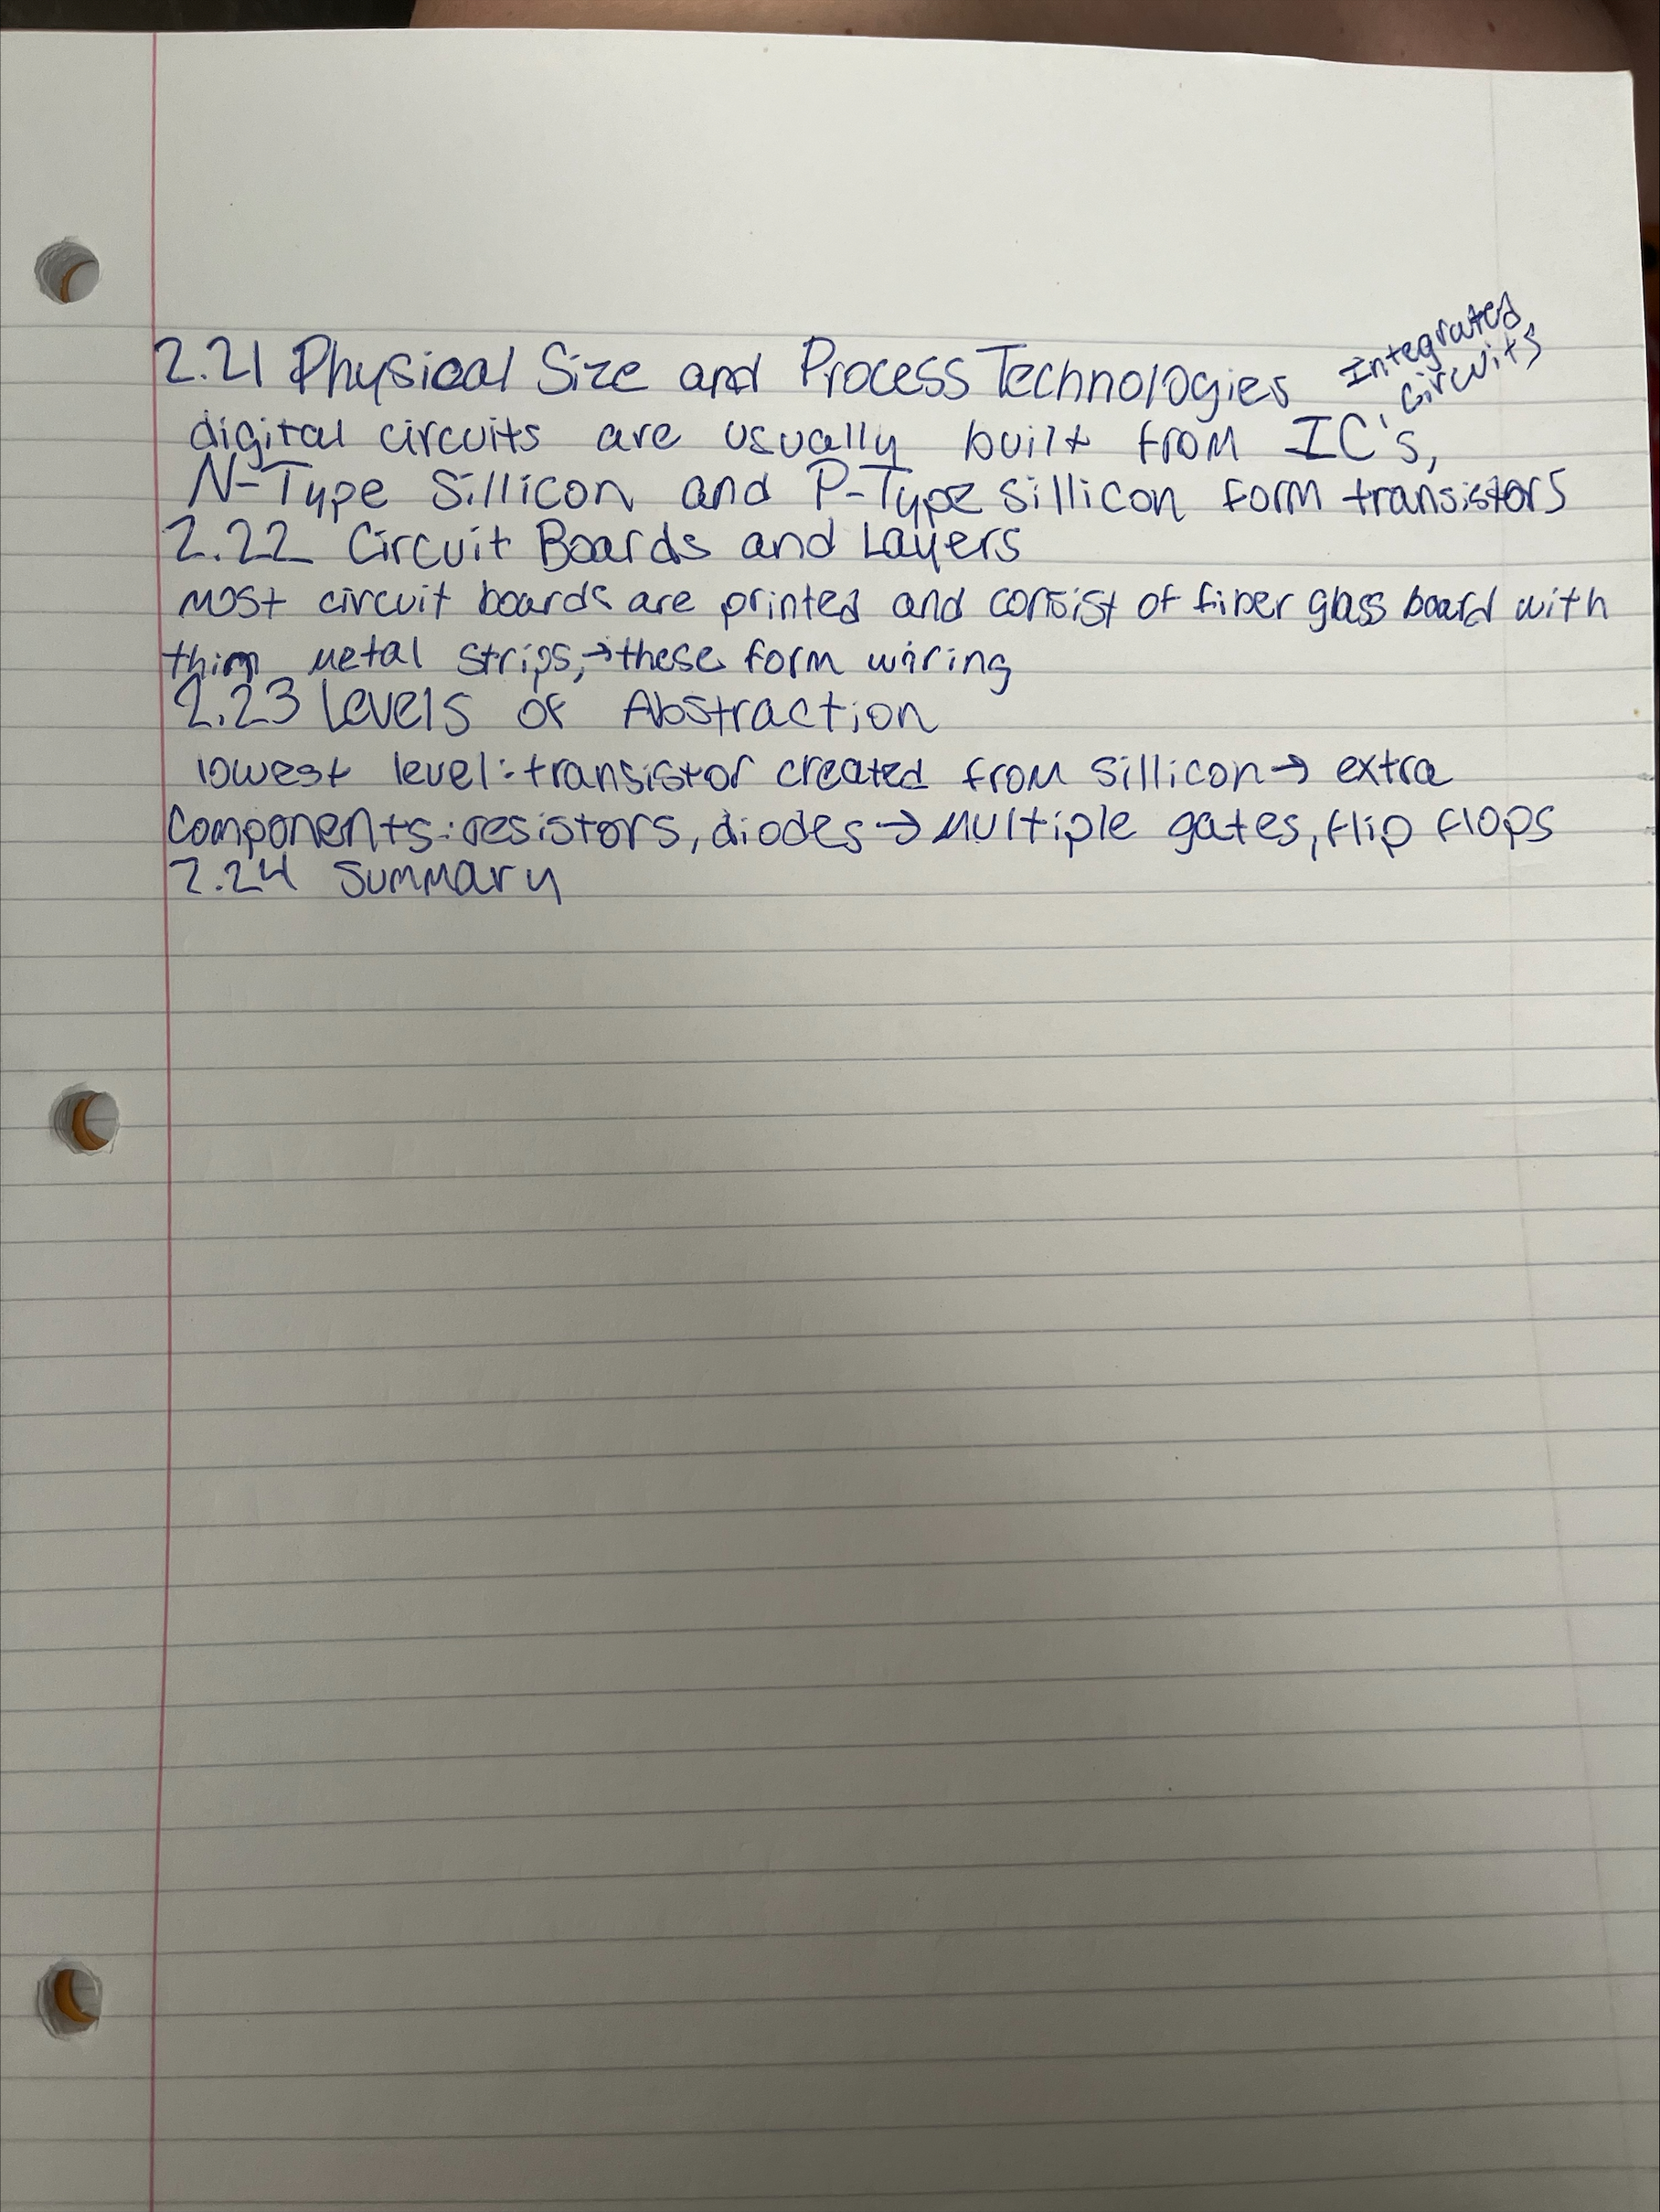 2.21 Physical Size and Process Technologies
Integrated
Circuits
digital circuits are usually built from IC's,
N-Type Sillicon and P-Type sillicon form transistors
2.22 Circuit Boards and Layers
most circuit boards are printed and consist of fiber glass board with
thin metal strips,→these form wiring
2.23 Levels of Abstraction
lowest level:transistor created from sillicon→ extra
components:resistors, diodes→ Multiple gates, flip flops
2.24 Summary